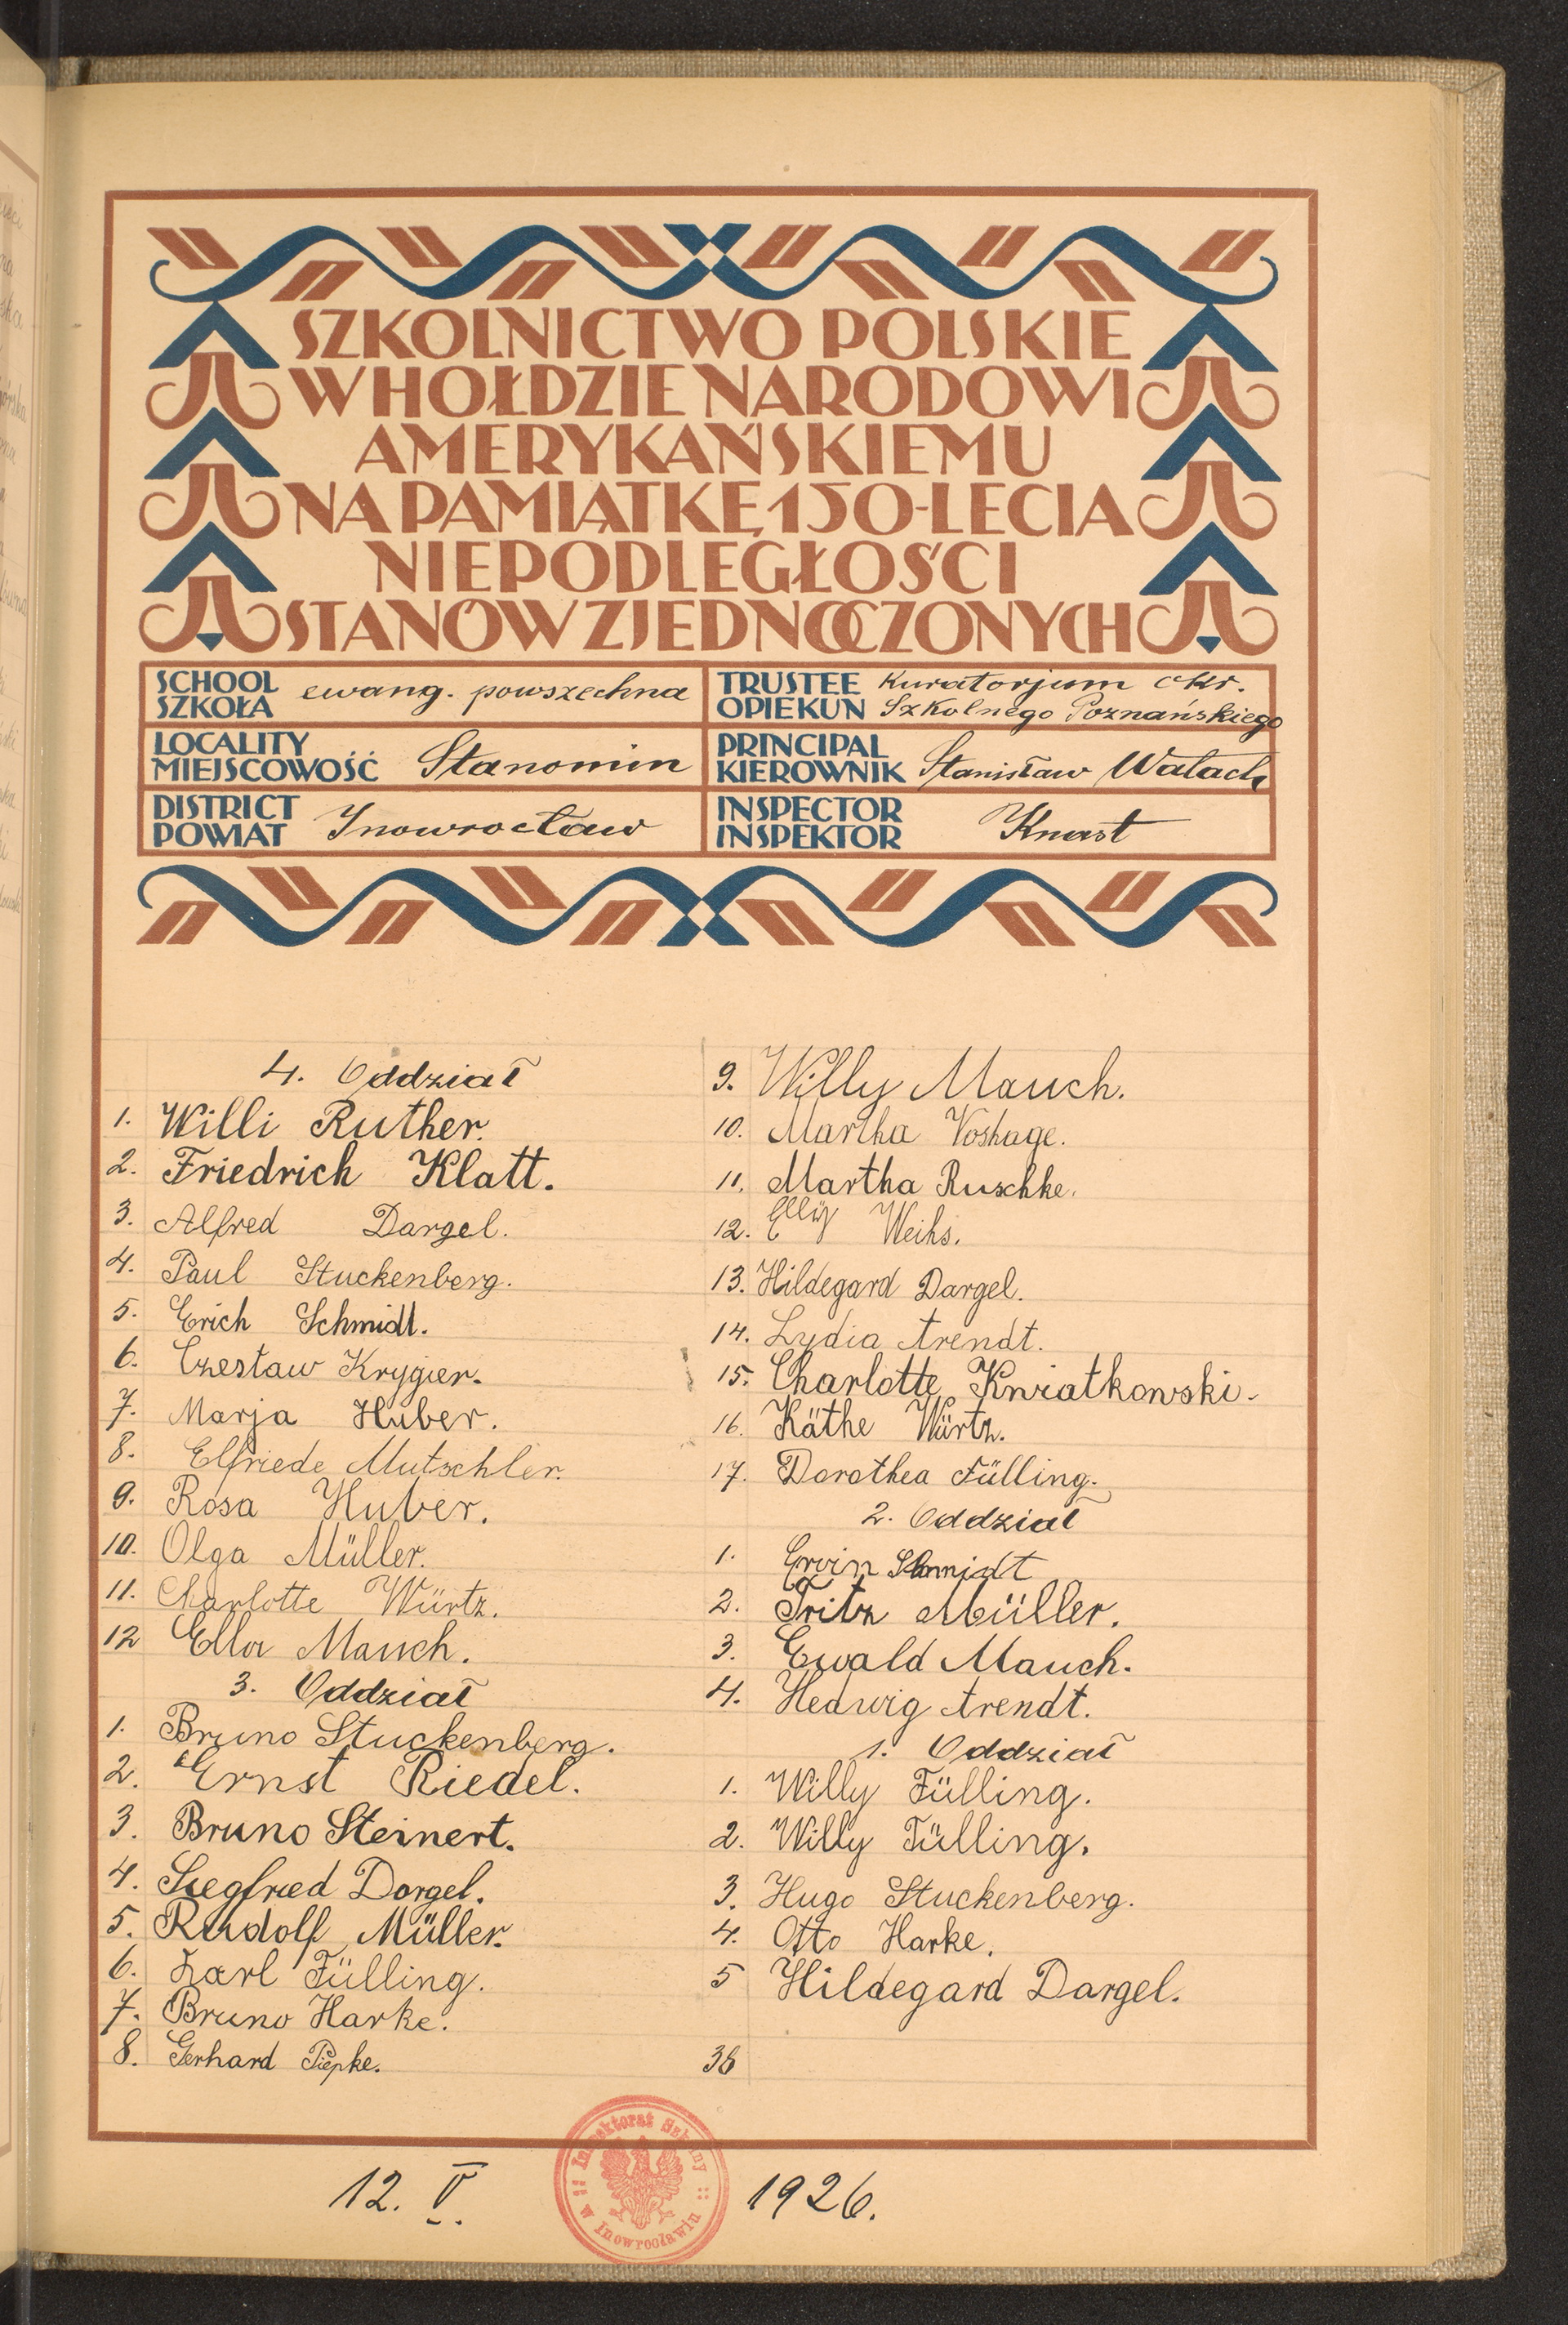 SZKOLNICTWO POLSKIE
W HOŁDZIE NARODOWI
AMERYKAŃSKIEMU
NA PAMIĄTKĘ 150-LECIA
NIEPODLEGŁOŚCI
STANÓW ZJEDNOCZONYCH
SCHOOL
SZKOŁA ewang. powszechna
TRUSTEE Kuratorjum Okr.
OPIEKUN Szkolnego Poznańskiego
LOCALITY
MIEJSCOWOŚĆ Stanomin
PRINCIPAL
KIEROWNIK Stanisław Watach
DISTRICT
POWIAT Inowrocław
INSPECTOR
INSPEKTOR Knast
4. Oddział
1. Willi Ruther.
2. Friedrich Klatt.
3. Alfred Dargel.
4. Paul Stuckenberg.
5. Erich Schmidt.
6. Czesław Krygier.
7. Marja Huber.
8. Elfriede Mutschler.
9. Rosa Huber.
10. Olga Müller.
11. Charlotte Würtz.
12 Ella Mauch.
3. Oddział
1. Bruno Stuckenberg.
2. Ernst Riedel.
3. Bruno Steinert.
4. Siegfried Dargel.
5. Rudolf Müller.
6. Karl Fülling.
7. Bruno Harke.
8. Gerhard Piepke.
9. Willy Mauch.
10. Martha Voshage.
11. Martha Ruschke.
12. Elly Weihs.
13. Hildegard Dargel.
14. Lydia Arendt.
15. Charlotte Kwiatkowski.
16. Käthe Würtz.
17. Dorothea Fülling.
2. Oddział
1. Erwin Schmidt
2. Fritz Müller.
3. Ewald Mauch.
4. Hedwig Arendt.
1. Oddział
1. Willy Fülling.
2. Willy Fülling.
3. Hugo Stuckenberg.
4. Otto Harke.
5 Hildegard Dargel.
38
12. V. 1926.
Inspektorat Szkolny
w Inowrocławiu